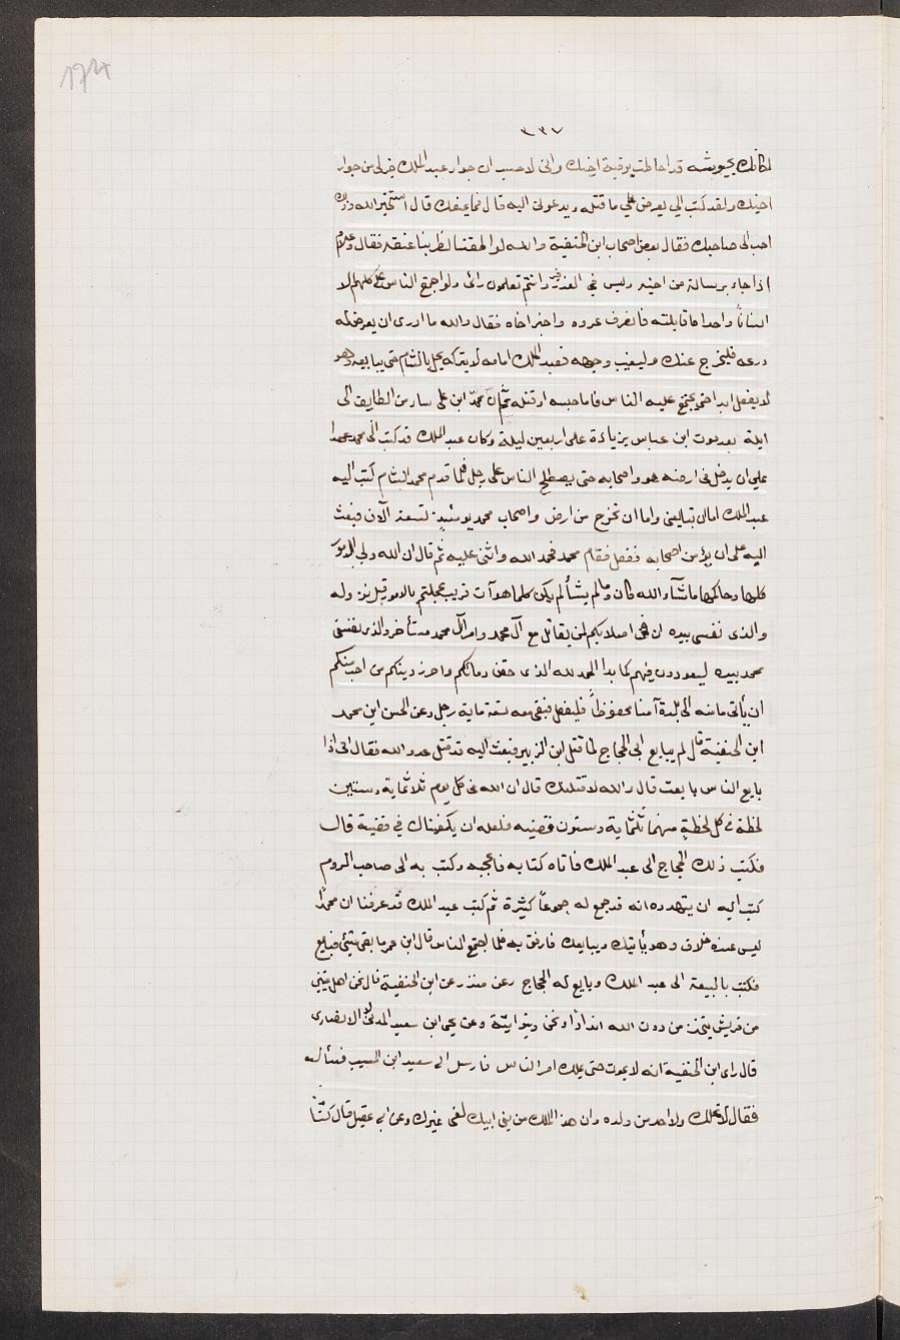 174
٣٣٧
لكأنك بجيوشه قد احاطت برقبة اخيك وانى لاحسب ان جوار عبد الملك خير لى من جوار
اخيك ولقد كتب الي يعرض علي ما قبله ويدعونى اليه قال فما يمنعك قال استخير الله وذلك
احب الى صاحبك فقال بعض اصحاب ابن الحنفية والله لو اطعتنا لضربنا عنقه فقال وعلام
اذا جاء برسالة من اخيه وليس في الغدر خير وانتم تعلمون رائى ولو اجمع الناس علي كلهم الا
انسانًا واحدا ما قاتلته فانصرف عروه واخبر اخاه فقال والله ما ارى ان يعرض له
دعه فليخرج عنك وليغيب وجهه فعبد الملك امامه لا يتركه يحل بالشام حتى يبايعه وهو
لا يفعل ابدا حتى يجتمع عليه الناس فاما حبسه او قتله ثم ان محمد ابن على سار من الطايف الى
ايلة بعد موت ابن عباس بزيادة على اربعين ليلة وكان عبد الملك قد كتب الى محمد عهدا
على ان يدخل فى ارضه هو واصحابه حتى يصطلح الناس على رجل فلما قدم محمد الشام كتب اليه
عبد الملك اما ان تبايعنى واما ان تخرج من ارض واصحاب محمد يومئيذ تسعة الآف فبعث
اليه على ان يؤمن اصحابه ففعل فقام محمد فحمد الله واثنى عليه ثم قال ان الله ولي الامور
كلها وحاكمها ما شآء الله كان وما لم يشأ لم يكن كلما هو آت قريب عجلتم بالامر قبل نزوله
والذى نفسى بيده ان فى اصلابكم لمن يقاتل مع آل محمد وامر آل محمد مستأخر والذى نفس
محمد بيده ليعودون فيهم كما بدا الحمد لله الذى حقن دمائكم واحرز دينكم من احب منكم
ان يأتى مأمنه الى بلدة آمنا محفوظاً فليفعل فبقى معه تسعة ماية رجل وعن الحسن ابن محمد
ابن الحنفية قال لم يبايع ابى الحجاج لما قتل ابن الزبير فبعث اليه قد قتل عدو الله فقال ابى اذا
بايع الناس بايعت قال والله لاقتلنك قال ان الله فى كل يوم ثلاثماية وستين
لحظة في كل لحظة منها ثلثماية وستون قضيه فلعله ان يكفيناك في قضية قال
فكتب ذلك الحجاج الى عبد الملك فاتاه كتابه فاعجبه وكتب به الى صاحب الروم
كتب اليه ان يتهدده انه قد جمع له جموعاً كثيرة ثم كتب عبد الملك قد عرفنا ان محمدا
ليس عنده خلاف وهو يأتيك ويبايعك فارفق به فلما اجتمع الناس قال ابن عمر ما بقى شئ فبايع
فكتب بالبيعة الى عبد الملك وبايع له الحجاج وعن منذر عن ابن الحنفية قال نحن اهل بيتين
من قريش نتخذ من دون الله اندادًا نحن وبنو اميّة وعن يحى ابن سعيد المدنى الانصارى
قال راى ابن الحنفية انه لا يموت حتى يملك امر الناس فارسل الى سعيد ابن المسيب فسأله
فقال لا تملك ولا احد من ولده وان هذا الملك من بنى ابيك لفى غيرك وعن ابى عقيل قال كنّا